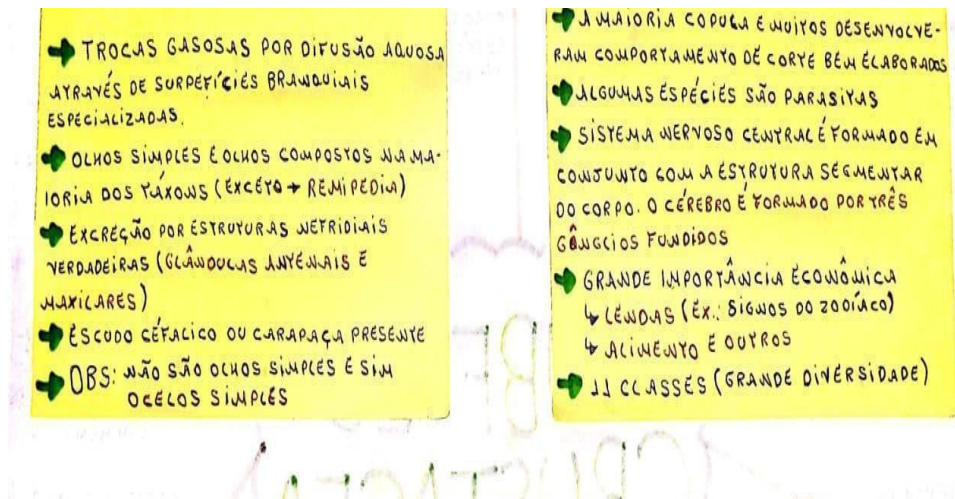 → TROCAS GASOSAS POR DIFUSÃO AQUOSA
ATRAVÉS DE SURPEFÍCIES BRANQUIAIS
ESPECIALIZADAS.
→ OLHOS SIMPLES E OLHOS COMPOSTOS NA MA-
IORIA DOS TÁXONS (EXCETO → REMIPEDIA)
→ EXCREÇÃO POR ESTRUTURAS NEFRIDIAIS
VERDADEIRAS (GLÂNDULAS ANTENAIS E
MAXILARES)
→ ESCUDO CEFÁLICO OU CARAPAÇA PRESENTE
→ OBS: NÃO SÃO OLHOS SIMPLES E SIM
OCELOS SIMPLES
→ A MAIORIA COPULA E MUITOS DESENVOLVE-
RAM COMPORTAMENTO DE CORTE BEM ELABORADOS
→ ALGUMAS ESPÉCIES SÃO PARASITAS
→ SISTEMA NERVOSO CENTRAL É FORMADO EM
CONJUNTO COM A ESTRUTURA SEGMENTAR
DO CORPO. O CÉREBRO É FORMADO POR TRÊS
GÂNGLIOS FUNDIDOS
→ GRANDE IMPORTÂNCIA ECONÔMICA
↳ LENDAS (EX.: SIGNOS DO ZODÍACO)
↳ ALIMENTO E OUTROS
→ 11 CLASSES (GRANDE DIVERSIDADE)